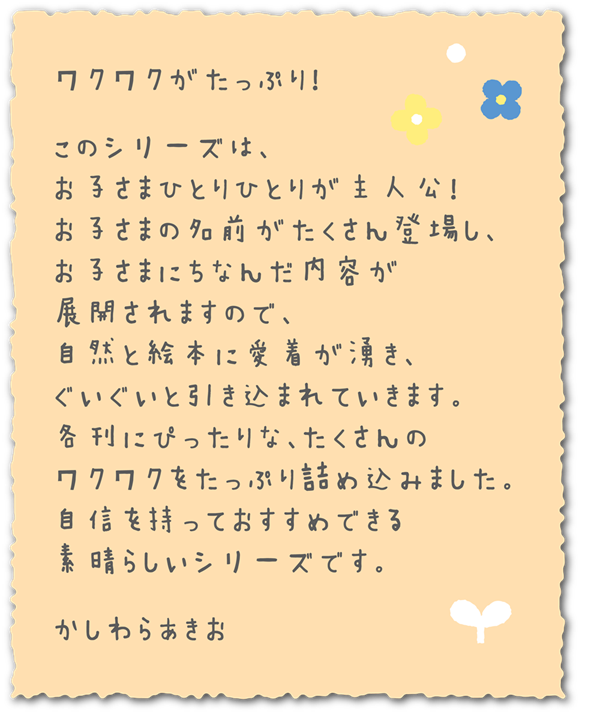 ワクワクがたっぷり!
このシリーズは、
お子さまひとりひとりが主人公!
お子さまの名前がたくさん登場し、
お子さまにちなんだ内容が
展開されますので、
自然と絵本に愛着が湧き、
ぐいぐいと引き込まれていきます。
各刊にぴったりな、たくさんの
ワクワクをたっぷり詰め込みました。
自信を持っておすすめできる
素晴らしいシリーズです。
かしわらあきお